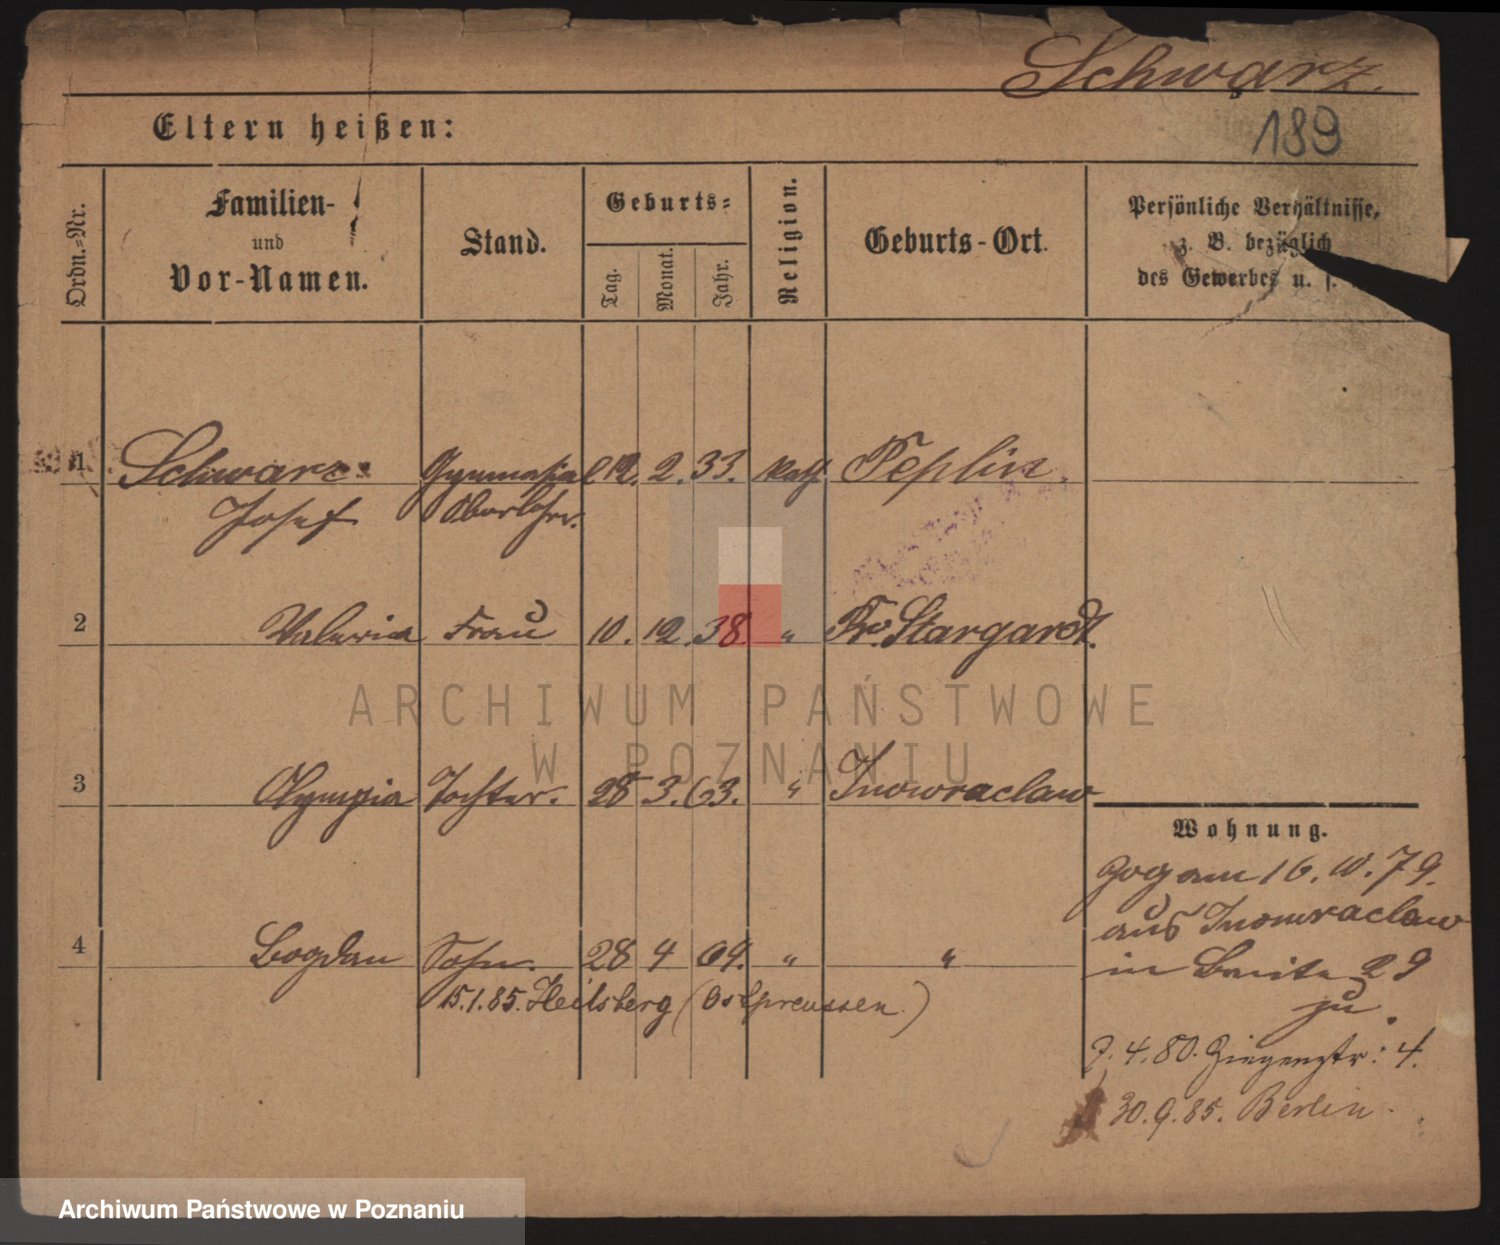 Schwarz.
189
Eltern heißen:
Ordn.-Nr.
Familien-
und
Vor-Namen.
Stand.
Geburts-
Tag.
Monat.
Jahr.
Religion.
Geburts-Ort.
Persönliche Verhältnisse,
z. B. bezüglich
des Gewerbes u. s.
1 Schwarz Gymnasial 12. 2. 33. Kath. Peplin.
Josef Oberlehr.
2 Valeria Frau 10. 12. 38. " Pr. Stargardt.
3 Olympia Tochter. 28 3. 63. " Inowraclaw
4 Bogdan Sohn. 28 4 64. " "
15.1.85. Heilsberg (Ostpreussen.)
Wohnung.
Zog am 16. 10. 79.
aus Inowraclaw
in Breite 29
zu.
7. 4. 80. Ziegenstr: 4.
30. 9. 85. Berlin.
ARCHIWUM PAŃSTWOWE
W POZNANIU
Archiwum Państwowe w Poznaniu